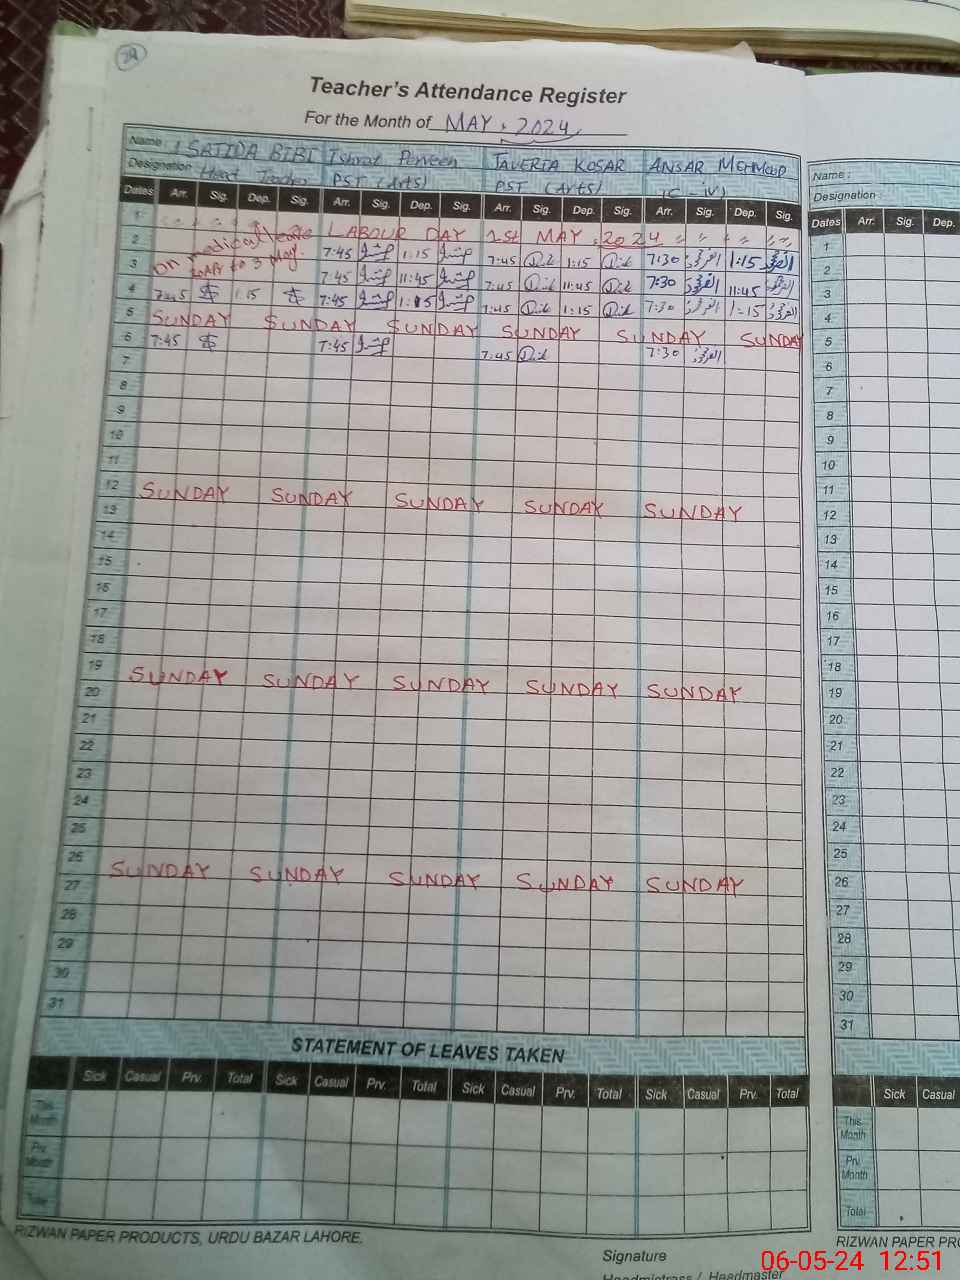 29
Teacher's Attendance Register
For the Month of MAY, 2024
Name : SAJIDA BIBI Ishrat Perveen TAVERIA KOSAR ANSAR MEHMOOD
Designation Head Teacher PST (Arts) PST (Arts) (C-iv)
Dates Arr. Sig. Dep. Sig. Arr. Sig. Dep. Sig. Arr. Sig. Dep. Sig. Arr. Sig. Dep. Sig.
1 LABOUR DAY 1st MAY, 2024
2 on medical leave 7:45 1:15 7:45 1:15 7:30 1:15
3 to 3 May. 7:45 11:45 7:45 11:45 7:30 11:45
4 7:45 1:15 7:45 1:15 7:45 1:15 7:30 1:15
5 SUNDAY SUNDAY SUNDAY SUNDAY SUNDAY SUNDAY
6 7:45 7:45 7:45 7:30
7
8
9
10
11
12 SUNDAY SUNDAY SUNDAY SUNDAY SUNDAY
13
14
15
16
17
18
19 SUNDAY SUNDAY SUNDAY SUNDAY SUNDAY
20
21
22
23
24
25
26 SUNDAY SUNDAY SUNDAY SUNDAY SUNDAY
27
28
29
30
31
STATEMENT OF LEAVES TAKEN
Sick Casual Prv. Total Sick Casual Prv. Total Sick Casual Prv. Total Sick Casual Prv. Total
This Month
Prv. Month
Total
RIZWAN PAPER PRODUCTS, URDU BAZAR LAHORE.
Signature
Headmistress / Headmaster
Name :
Designation :
Dates Arr. Sig. Dep.
1
2
3
4
5
6
7
8
9
10
11
12
13
14
15
16
17
18
19
20
21
22
23
24
25
26
27
28
29
30
31
Sick Casual
This Month
Prv. Month
Total
RIZWAN PAPER PRO
06-05-24 12:51